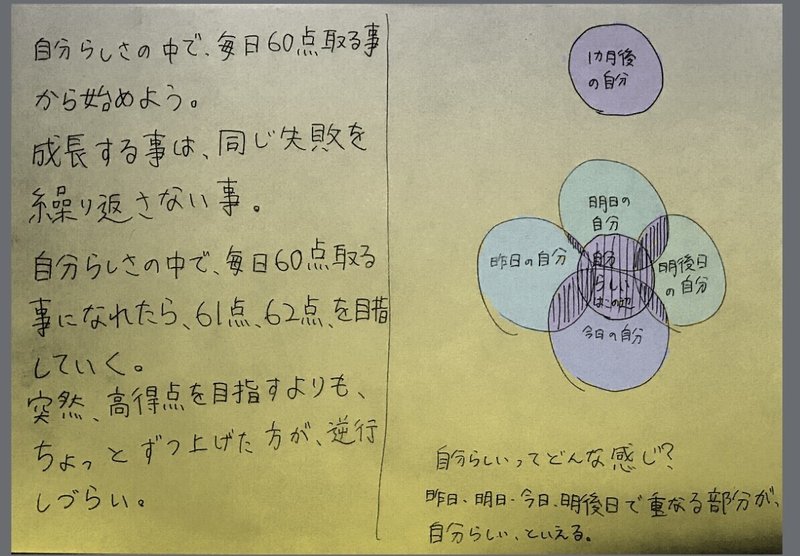 自分らしさの中で、毎日60点取る事
から始めよう。
成長する事は、同じ失敗を
繰り返さない事。
自分らしさの中で、毎日60点取る
事になれたら、61点、62点、を目指
していく。
突然、高得点を目指すよりも、
ちょっとずつ上げた方が、逆行
しづらい。
1カ月後
の自分
明日の
自分
昨日の自分
自分
らしい
はこの辺
明後日
の自分
今日の自分
自分らしいってどんな感じ?
昨日、明日、今日、明後日で重なる部分が、
自分らしい、といえる。